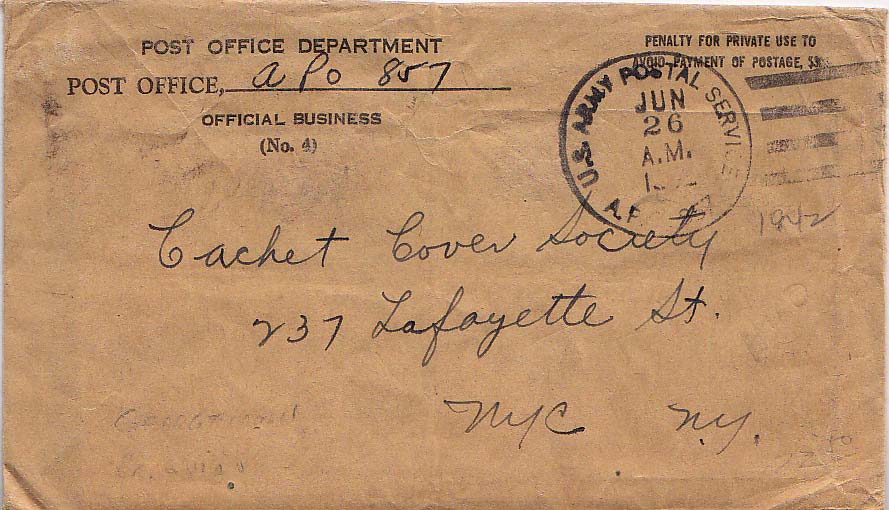 POST OFFICE DEPARTMENT
POST OFFICE, APO 857
OFFICIAL BUSINESS
(No. 4)
PENALTY FOR PRIVATE USE TO
AVOID PAYMENT OF POSTAGE,
U.S. ARMY POSTAL SERVICE
JUN
26
A.M.
1942
Cachet Cover Society
237 Lafayette St.
NYC N.Y.
GEORGETOWN